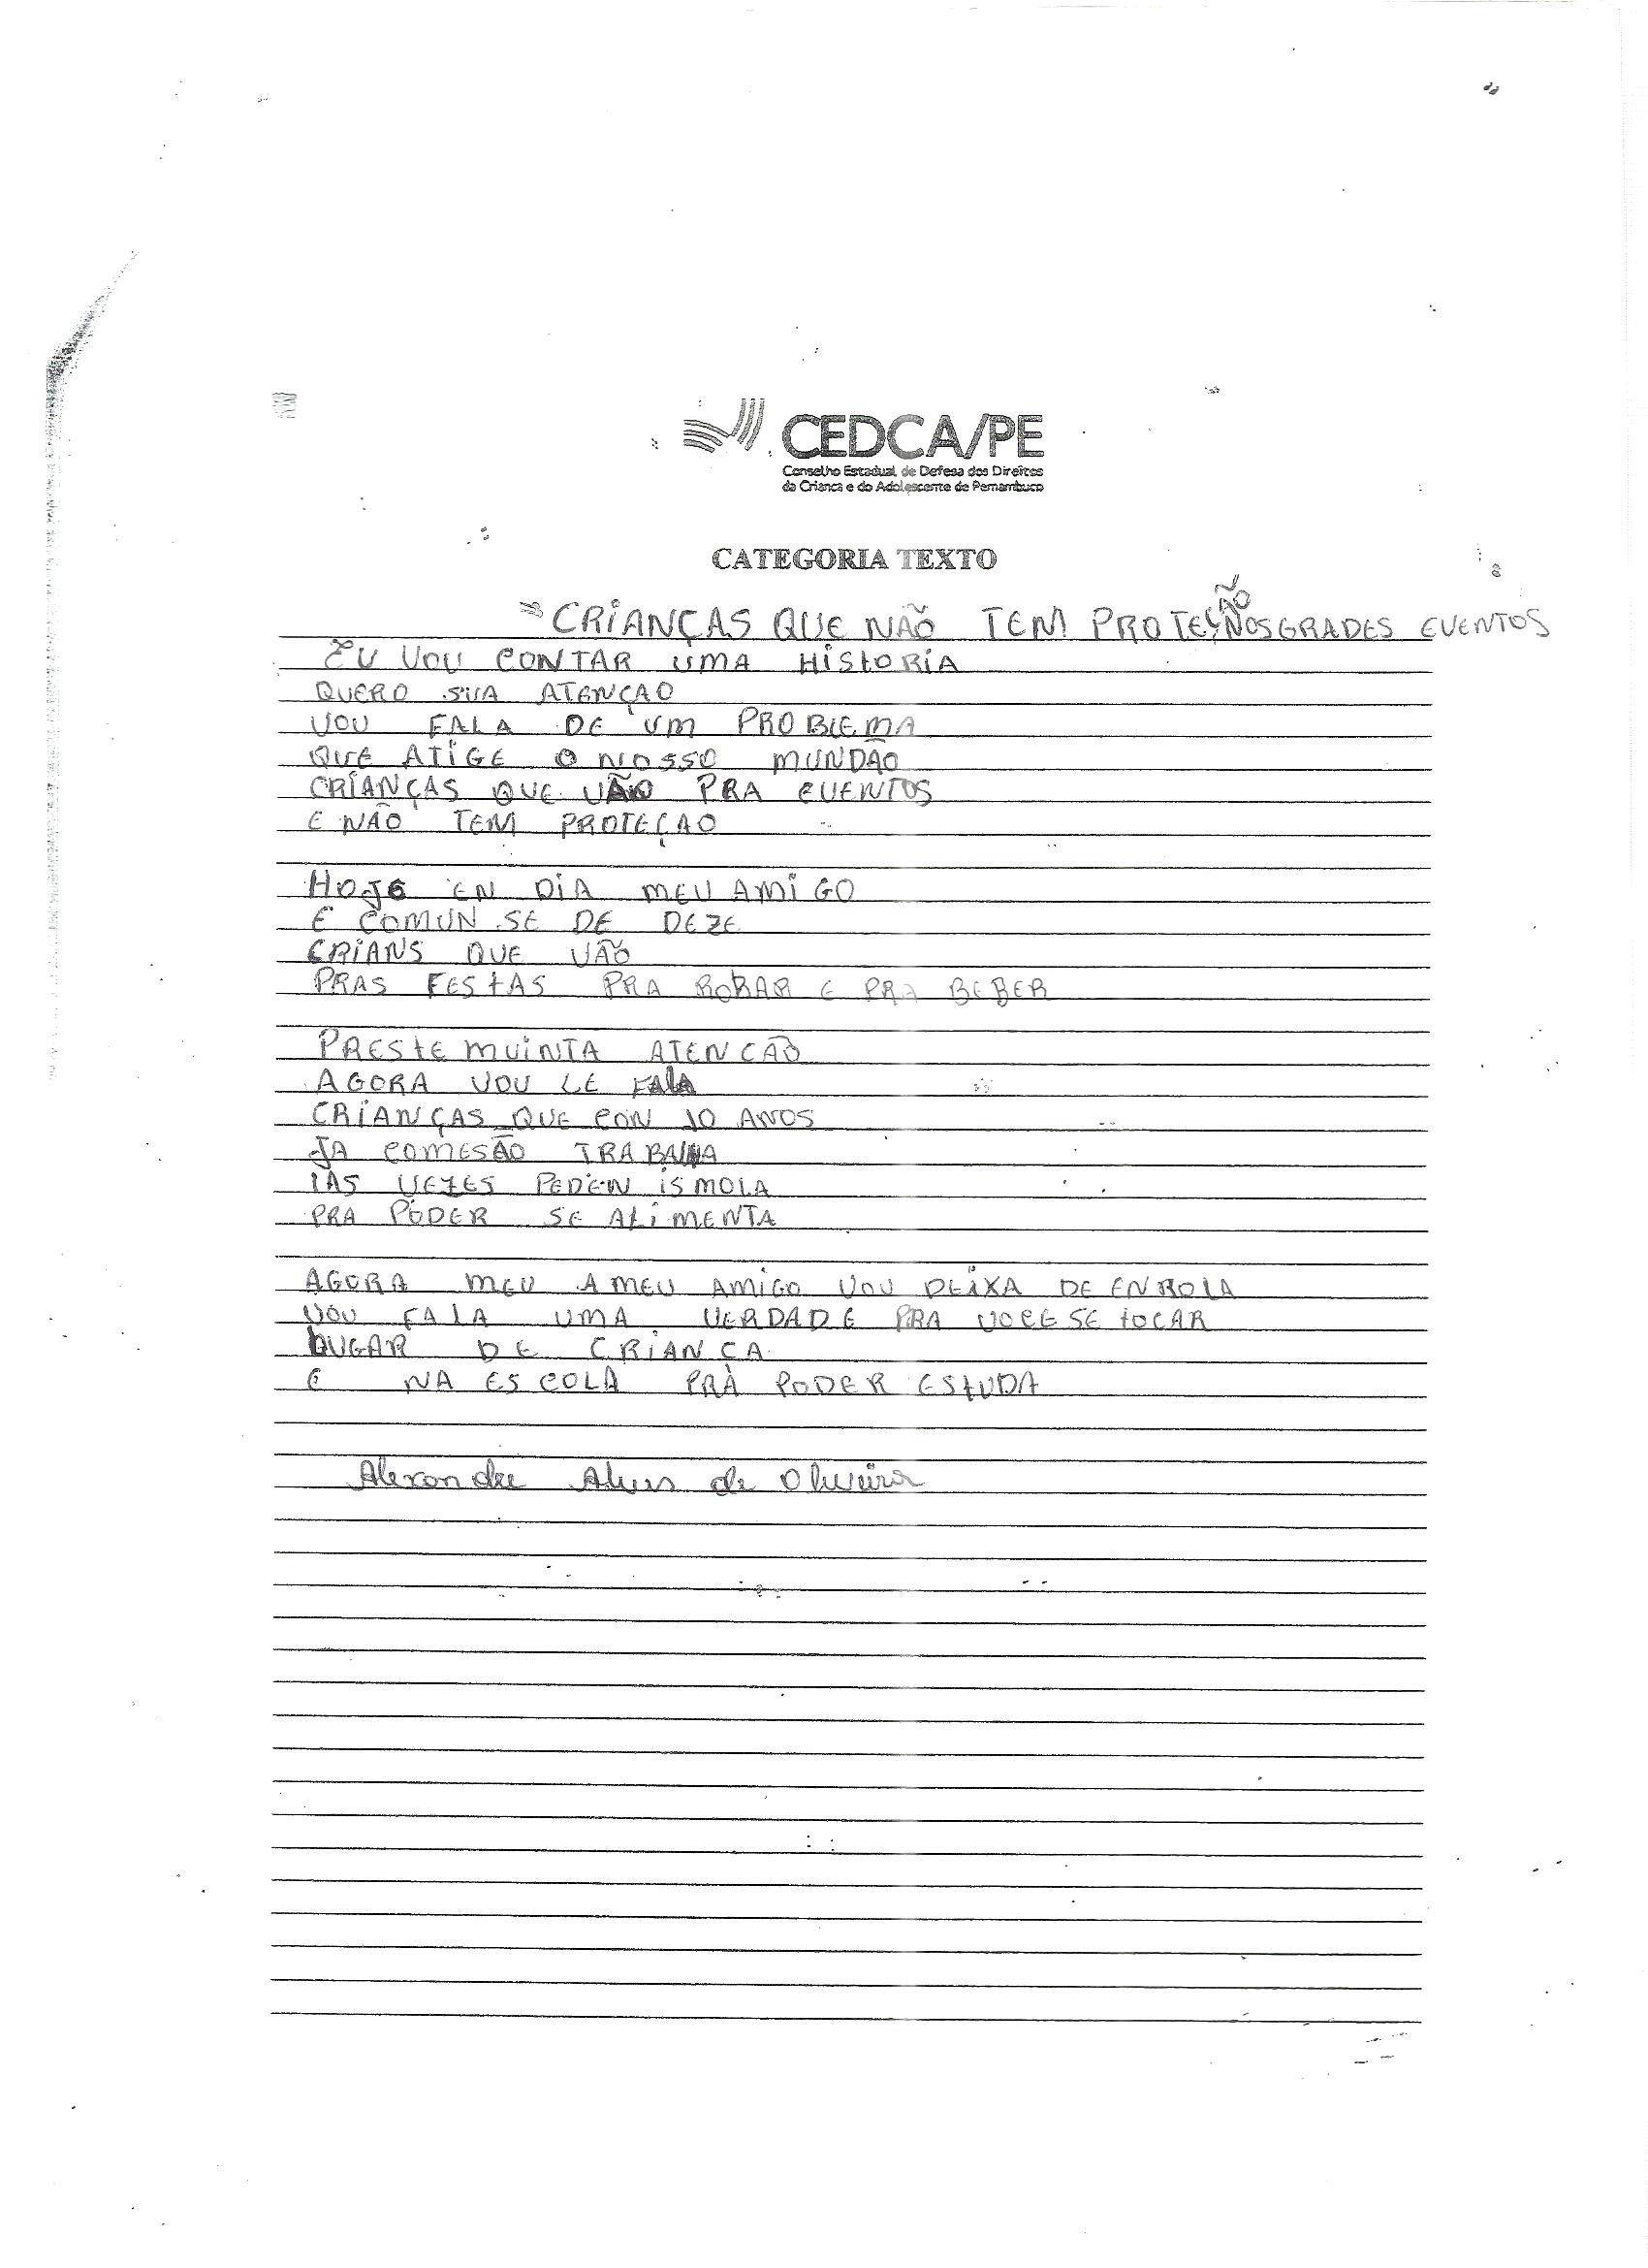 CEDCA/PE
Conselho Estadual de Defesa dos Direitos
da Criança e do Adolescente de Pernambuco
CATEGORIA TEXTO
CRIANÇAS QUE NÃO TEM PROTEÇÃO NOS GRADES EVENTOS
EU VOU CONTAR UMA HISTORIA
QUERO SUA ATENÇAO
VOU FALA DE UM PROBLEMA
QUE ATIGE O NOSSO MUNDÃO
CRIANÇAS QUE VÃO PRA EVENTOS
E NÃO TEM PROTEÇAO
HOJE EN DIA MEU AMIGO
E COMUN SE DE DEZE
CRIANS QUE VÃO
PRAS FESTAS PRA ROBAR E PRA BEBER
PRESTE MUINTA ATENCÃO
AGORA VOU LE FALA
CRIANÇAS QUE CON 10 ANOS
JA COMESÃO TRABALHA
IAS VEZES PEDEN ISMOLA
PRA PODER SE ALIMENTA
AGORA MEU A MEU AMIGO VOU DEIXA DE ENROLA
VOU FALA UMA VERDADE PRA VOCE SE TOCAR
LUGAR DE CRIANCA
E NA ESCOLA PRA PODER ESTUDA
Alexandre Alves de Oliveira